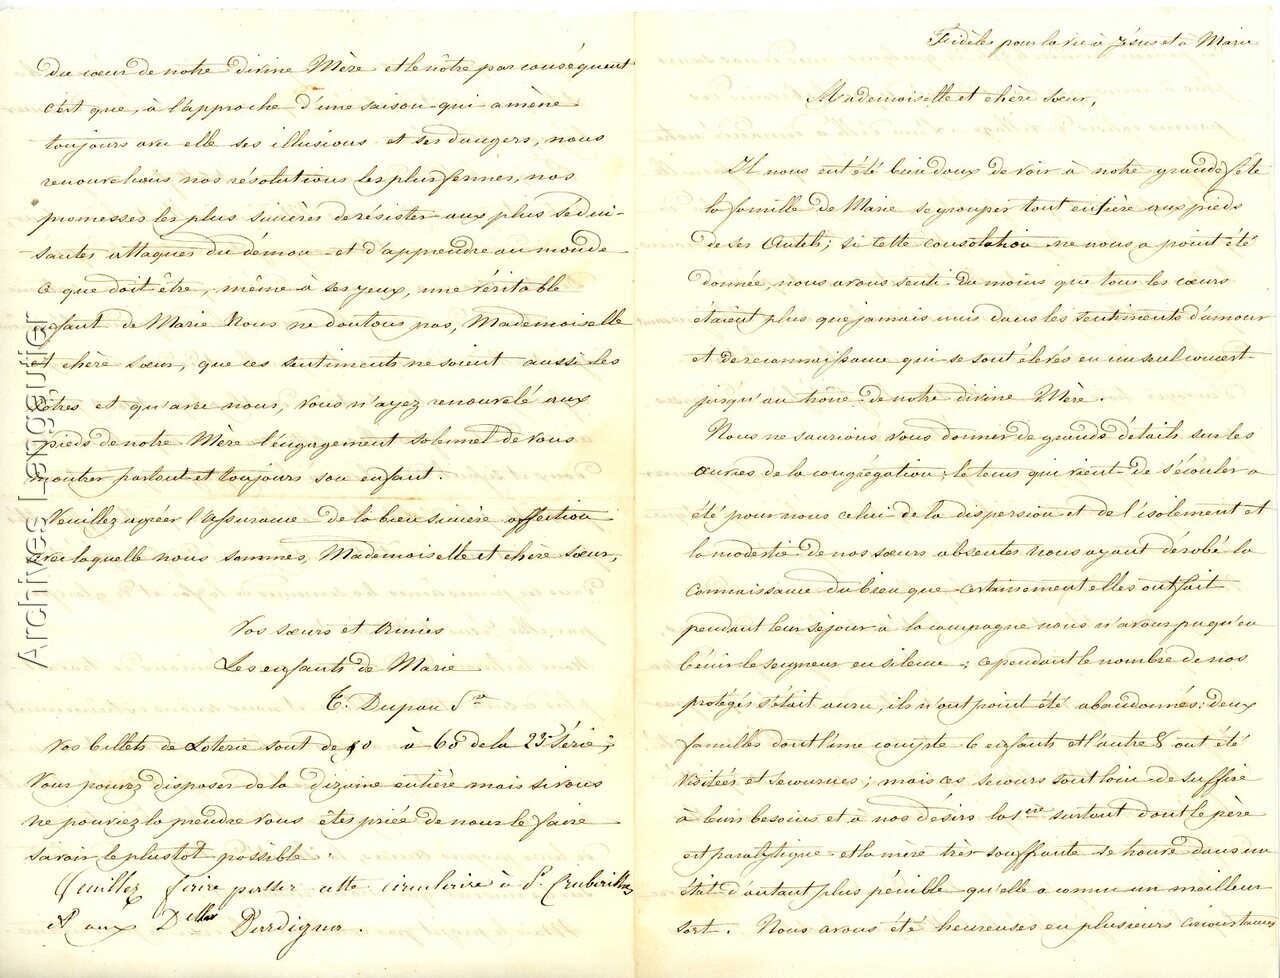 Fidèles pour la vie à Jésus et à Marie
Mademoiselle et chère sœur,
Il nous eut été bien doux de voir à notre grande fête
la famille de Marie se grouper tout entière aux pieds
de ses Autels; si cette consolation ne nous a point été
donnée, nous avons senti du moins que tous les cœurs
étaient plus que jamais unis dans les sentiments d'amour
et de reconnaissance qui se sont élevés en un seul concert
jusqu'au trône de notre divine Mère.
Nous ne saurions vous donner de grands détails sur les
œuvres de la congrégation; le tems qui vient de s'écouler a
été pour nous celui de la dispersion et de l'isolement et
la modestie de nos sœurs absentes nous ayant dérobé la
connaissance du bien que certainement elles ont fait
pendant leur séjour à la campagne nous n'avons pu qu'en
bénir le seigneur en silence; cependant le nombre de nos
protégés s'était accru, ils n'ont point été abandonnés: deux
familles dont l'une compte 6 enfants et l'autre 8 ont été
visitées et secourues; mais ces secours sont loin de suffire
à leurs besoins et à nos désirs la 1ère surtout dont le père
est paralytique et la mère très souffante se trouve dans un
état d'autant plus pénible qu'elle a connu un meilleur
sort. Nous avons été heureuses en plusieurs circonstances
du cœur de notre divine Mère et le nôtre par conséquent
c'est que, à l'approche d'une saison qui amène
toujours avec elle ses illusions et ses dangers, nous
renouvelions nos résolutions les plus fermes, nos
promesses les plus sincères de résister aux plus sédui-
santes attaques du démon et d'apprendre au monde
ce que doit être, même à ses yeux, une véritable
enfant de Marie Nous ne doutons pas, Mademoiselle
et chère sœur, que ces sentiments ne soient aussi les
vôtres et qu'avec nous, vous n'ayez renouvelé aux
pieds de notre Mère l'engagement solennel de vous
montrer partout et toujours son enfant.
Veuillez agréer l'assurance de la bien sincère affection
avec laquelle nous sommes, Mademoiselle et chère sœur,
Vos sœurs et Amies
Les enfants de Marie
Dupau
Vos billets de Loterie sont de 50 à 60 de la 23e Série;
Vous pouvez disposer de la dizaine entière mais si vous
ne pouviez la prendre vous êtes priée de nous le faire
savoir le plustot possible.
Veuillez faire passer cette circulaire à
et aux Delles Dardignac.
Archives Lengautier